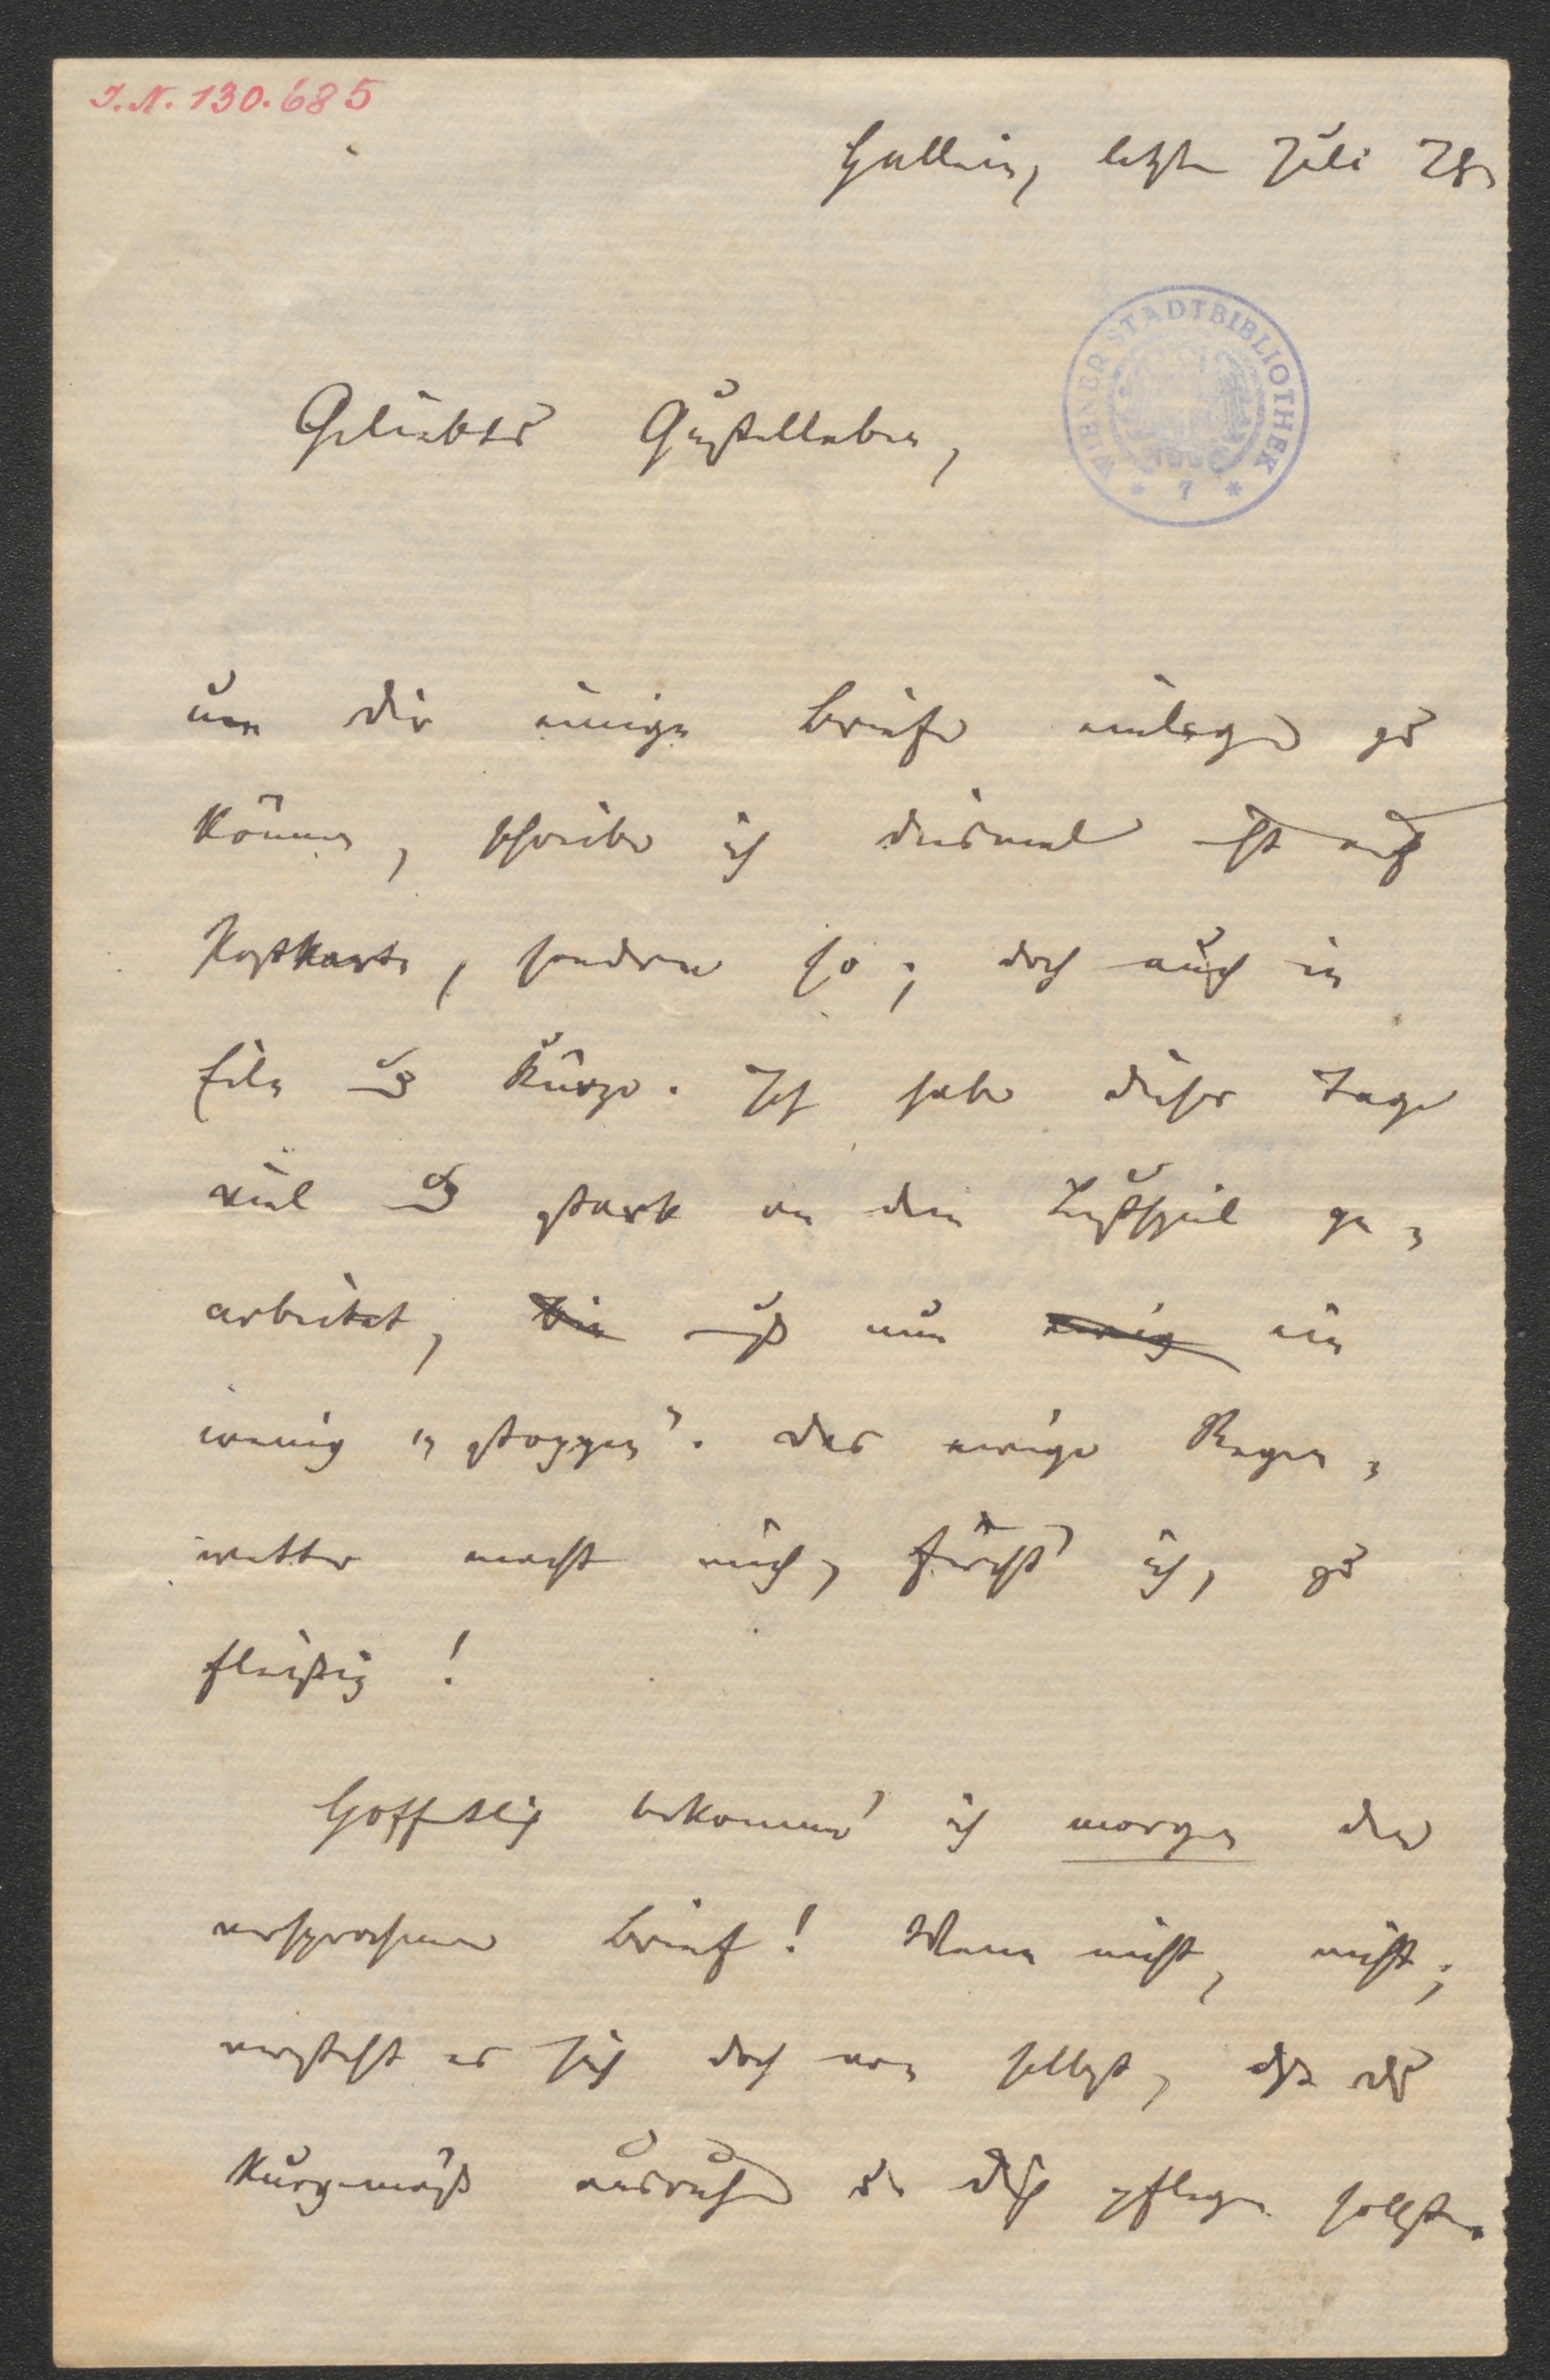 I.N. 130.685
Hallein, letzten Juli 28.
WIENER STADTBIBLIOTHEK
* 7 *
Geliebtes Gustelleben,
um dir einige Briefe einlegen zu
können, schreibe ich diesmal nicht auf
Postkarte, sondern so; doch auch in
Eile u Kürze. Ich habe dieser Tage
viel u stark an dem Lustspiel ge-
arbeitet, muß nun ein
wenig „stoppen". Das ewige Regen-
wetter macht mich, fürcht' ich, zu
fleißig!
Hoffentlich bekomme' ich morgen den
versprochenen Brief! Wenn nicht, nicht;
versteht es sich doch von selbst, daß du
kurgemäß ausruhen u. dich pflegen sollst.